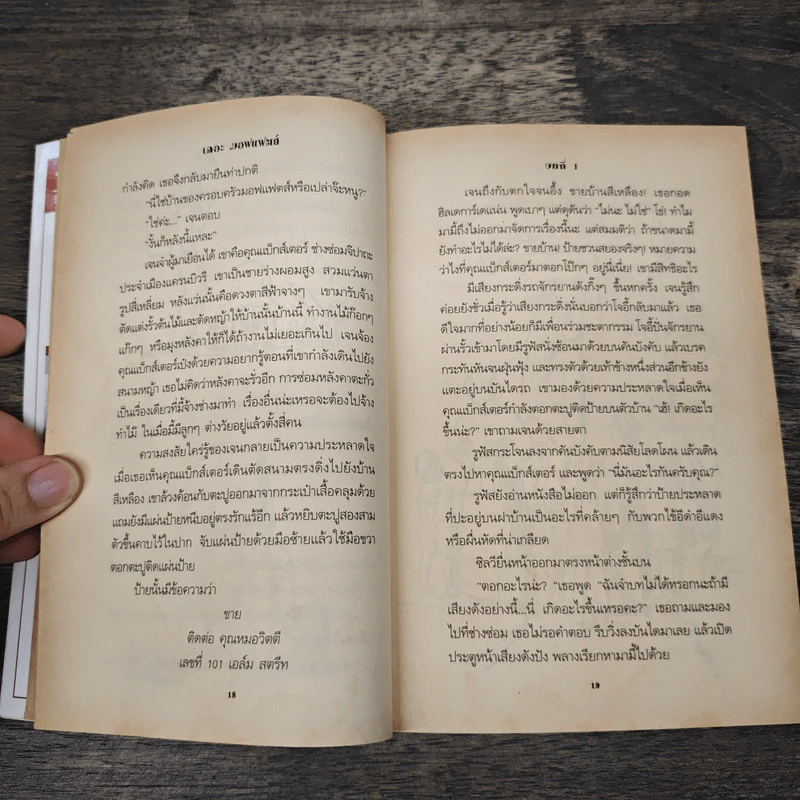 เดอะ มอฟแฟตส์
กำลังคิด เธอจึงกลับมายืนท่าปกติ
"นี่ใช่บ้านของครอบครัวมอฟแฟตส์หรือเปล่าจ๊ะหนู?"
"ใช่ค่ะ..." เจนตอบ
"งั้นก็หลังนี้แหละ"
เจนจำผู้มาเยือนได้ เขาคือคุณแบ็กส์เตอร์ ช่างซ่อมจิปาถะ
ประจำเมืองแครนบิวรี เขาเป็นชายร่างผอมสูง สวมแว่นตา
รูปสี่เหลี่ยม หลังแว่นนั้นคือดวงตาสีฟ้าจางๆ เขามารับจ้าง
ตัดแต่งรั้วต้นไม้และตัดหญ้าให้บ้านนั้นบ้านนี้ ทำงานไม้ก๊อกๆ
แก๊กๆ หรือมุงหลังคาให้ก็ได้ถ้างานไม่เยอะเกินไป เจนจ้อง
คุณแบ็กส์เตอร์เป๋งด้วยความอยากรู้ตอนที่เขากำลังเดินไปยัง
สนามหญ้า เธอไม่คิดว่าหลังคาจะรั่วอีก การซ่อมหลังคาตะกั่ว
เป็นเรื่องเดียวที่มี้จ้างช่างมาทำ เรื่องอื่นน่ะเหรอจะต้องไปจ้าง
ทำไม้ ในเมื่อมี้มีลูกๆ ต่างวัยอยู่แล้วตั้งสี่คน
ความสงสัยใคร่รู้ของเจนกลายเป็นความประหลาดใจ
เมื่อเธอเห็นคุณแบ็กส์เตอร์เดินตัดสนามตรงดิ่งไปยังบ้าน
สีเหลือง เขาล้วงค้อนกับตะปูออกมาจากกระเป๋าเสื้อคลุมด้วย
แถมยังมีแผ่นป้ายหนีบอยู่ตรงรักแร้อีก แล้วหยิบตะปูสองสาม
ตัวขึ้นคาบไว้ในปาก จับแผ่นป้ายด้วยมือซ้ายแล้วใช้มือขวา
ตอกตะปูติดแผ่นป้าย
ป้ายนั้นมีข้อความว่า
ขาย
ติดต่อ คุณหมอวิตตี
เลขที่ 101 เอล์ม สตรีท
18
บทที่ 1
เจนถึงกับตกใจจนอึ้ง ขายบ้านสีเหลือง! เธอกอด
ฮิลเดการ์เดแน่น พูดเบาๆ แต่ดุดันว่า "ไม่นะ ไม่ใช่" โธ่! ทำไม
มามี้ถึงไม่ออกมาจัดการเรื่องนี้นะ แต่สมมติว่า ถ้าขนาดมามี้
ยังทำอะไรไม่ได้ล่ะ? ขายบ้าน! ป้ายชวนสยองจริงๆ! หมายความ
ว่าไงที่คุณแบ็กส์เตอร์มาตอกโป๊กๆ อยู่นี่เนี่ย! เขามีสิทธิอะไร
มีเสียงกระดิ่งรถจักรยานดังกิ๊งๆ ขึ้นหกครั้ง เจนรู้สึก
ค่อยยังชั่วเมื่อรู้ว่าเสียงกระดิ่งนั่นบอกว่าโจอี้กลับมาแล้ว เธอ
ดีใจมากที่อย่างน้อยก็มีเพื่อนร่วมชะตากรรม โจอี้ปั่นจักรยาน
ผ่านรั้วเข้ามาโดยมีรูฟัสนั่งซ้อนมาด้วยบนคันบังคับ แล้วเบรค
กระทันหันจนฝุ่นฟุ้ง และทรงตัวด้วยเท้าข้างหนึ่งส่วนอีกข้างยัง
แตะอยู่บนบันไดรถ เขามองด้วยความประหลาดใจเมื่อเห็น
คุณแบ็กส์เตอร์กำลังตอกตะปูติดป้ายบนตัวบ้าน "เฮ้! เกิดอะไร
ขึ้นน่ะ?" เขาถามเจนด้วยสายตา
รูฟัสกระโจนลงจากคันบังคับตามนิสัยโลดโผน แล้วเดิน
ตรงไปหาคุณแบ็กส์เตอร์ และพูดว่า "นี่มันอะไรกันครับคุณ?"
รูฟัสยังอ่านหนังสือไม่ออก แต่ก็รู้สึกว่าป้ายประหลาด
ที่ปะอยู่บนฝาบ้านเป็นอะไรที่คล้ายๆ กับพวกไข้อีดำอีแดง
หรือผื่นหัดที่น่าเกลียด
ซิลวียื่นหน้าออกมาตรงหน้าต่างชั้นบน
"ตอกอะไรน่ะ? "เธอพูด "ฉันจำบทไม่ได้หรอกนะถ้ามี
เสียงดังอย่างนี้...นี่ เกิดอะไรขึ้นเหรอคะ?" เธอถามและมอง
ไปที่ช่างซ่อม เธอไม่รอคำตอบ รีบวิ่งลงบันไดมาเลย แล้วเปิด
ประตูหน้าเสียงดังปัง พลางเรียกหามามี้ไปด้วย
19